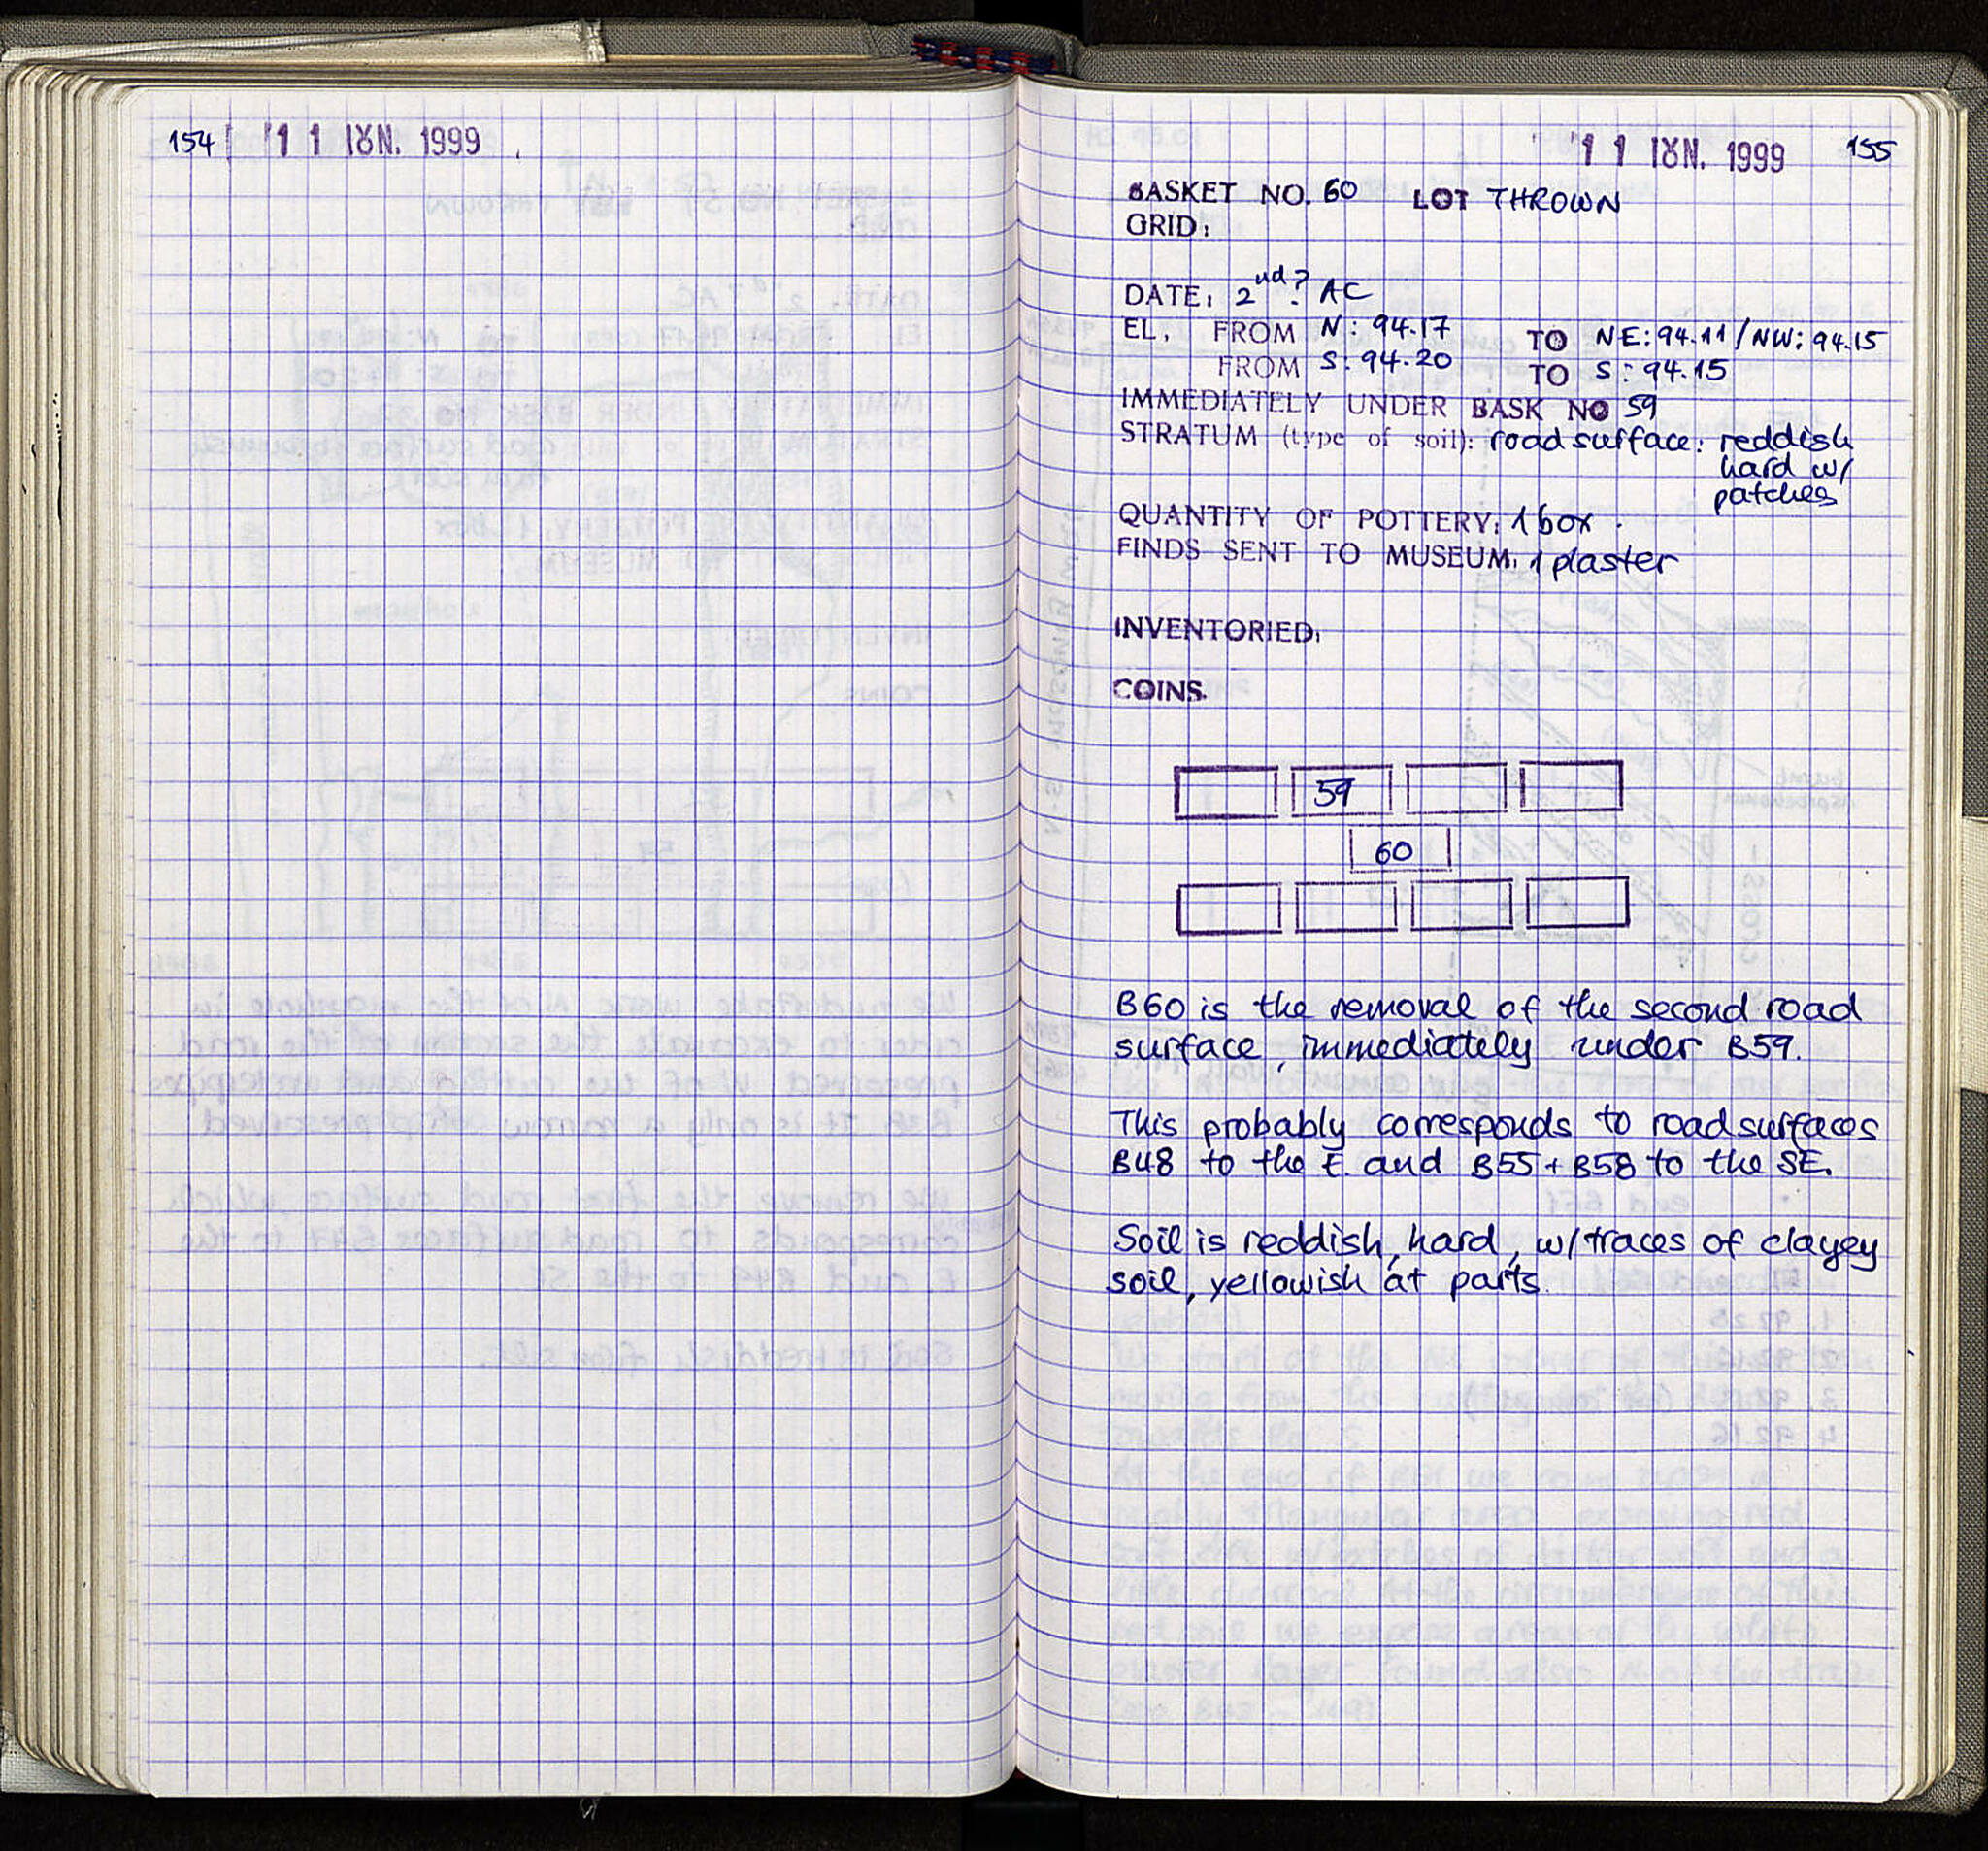 154 11 ΙΟΥΝ. 1999
11 ΙΟΥΝ. 1999 155
BASKET NO. 60 LOT THROWN
GRID:
DATE: 2nd? AC
EL. FROM N: 94.17 TO NE: 94.11 / NW: 94.15
FROM S: 94.20 TO S: 94.15
IMMEDIATELY UNDER BASK NO 59
STRATUM (type of soil): road surface: reddish
hard w/
patches
QUANTITY OF POTTERY: 1 box.
FINDS SENT TO MUSEUM: 1 plaster
INVENTORIED:
COINS.
59
60
B60 is the removal of the second road
surface, immediately under B59.
This probably corresponds to road surfaces
B48 to the E. and B55 + B58 to the SE.
Soil is reddish, hard, w/ traces of clayey
soil, yellowish at parts.